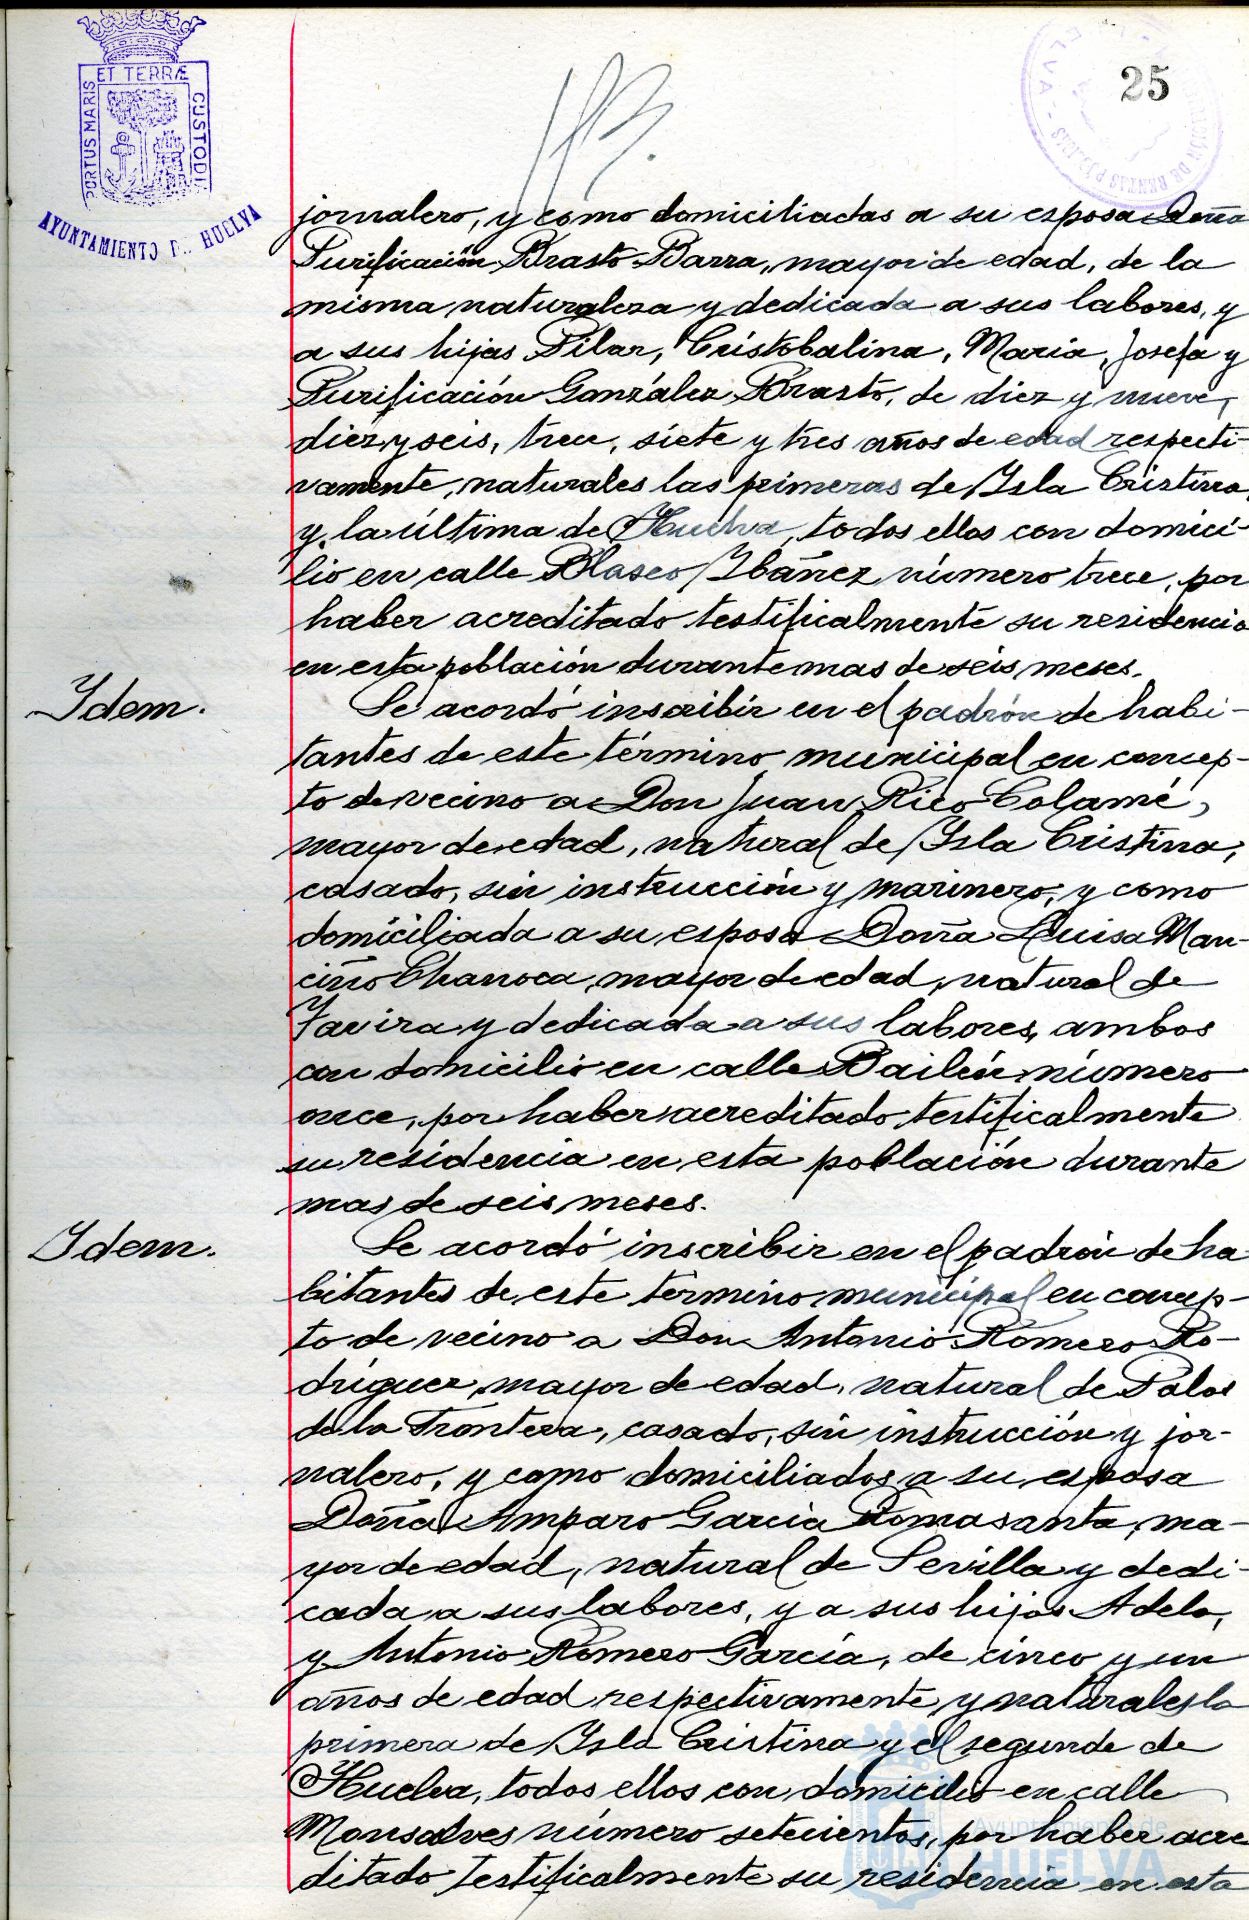 ET TERRÆ
PORTUS MARIS
CUSTODIA
AYUNTAMIENTO DE HUELVA
25
jornalero, y como domiciliadas a su esposa Doña
Purificación Brasto Barra, mayor de edad, de la
misma naturaleza y dedicada a sus labores, y
a sus hijas Pilar, Cristobalina, Maria, Josefa y
Purificación González Brasto, de diez y nueve,
diez y seis, trece, siete y tres años de edad respecti-
vamente, naturales las primeras de Isla Cristina,
y la última de Huelva, todos ellos con domici-
lio en calle Blasco Ibáñez número trece, por
haber acreditado testificalmente su residencia
en esta población durante mas de seis meses.
Idem.
Se acordó inscribir en el padrón de habi-
tantes de este término municipal en concep-
to de vecino a Don Juan Rico Colamé,
mayor de edad, natural de Isla Cristina,
casado, sin instrucción y marinero, y como
domiciliada a su esposa Doña Luisa Man-
ciño Chanoca, mayor de edad, natural de
Tavira y dedicada a sus labores, ambos
con domicilio en calle Bailén número
once, por haber acreditado testificalmente
su residencia en esta población durante
mas de seis meses.
Idem.
Se acordó inscribir en el padrón de ha
bitantes de este término municipal en concep-
to de vecino a Don Antonio Romero Ro-
dríguez, mayor de edad, natural de Palos
de la Frontera, casado, sin instrucción y jor-
nalero, y como domiciliados a su esposa
Doña Amparo García Romasanta, ma-
yor de edad, natural de Sevilla y dedi-
cada a sus labores, y a sus hijos Adela,
y Antonio Romero García, de cinco y un
años de edad respectivamente y naturales la
primera de Isla Cristina y el segundo de
Huelva, todos ellos con domicilio en calle
Monsalves número setecientos, por haber acre
ditado testificalmente su residencia en esta
Ayuntamiento de
HUELVA